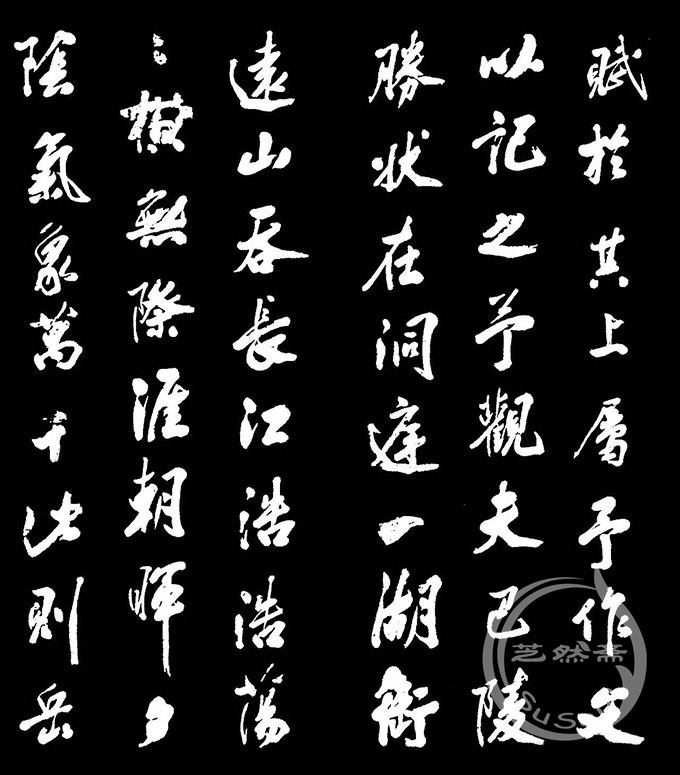 賦於其上屬予作文
以記之予觀夫巴陵
勝狀在洞庭一湖銜
遠山吞長江浩浩蕩
〻橫無際涯朝暉夕
陰氣象萬千此則岳
芝然斋